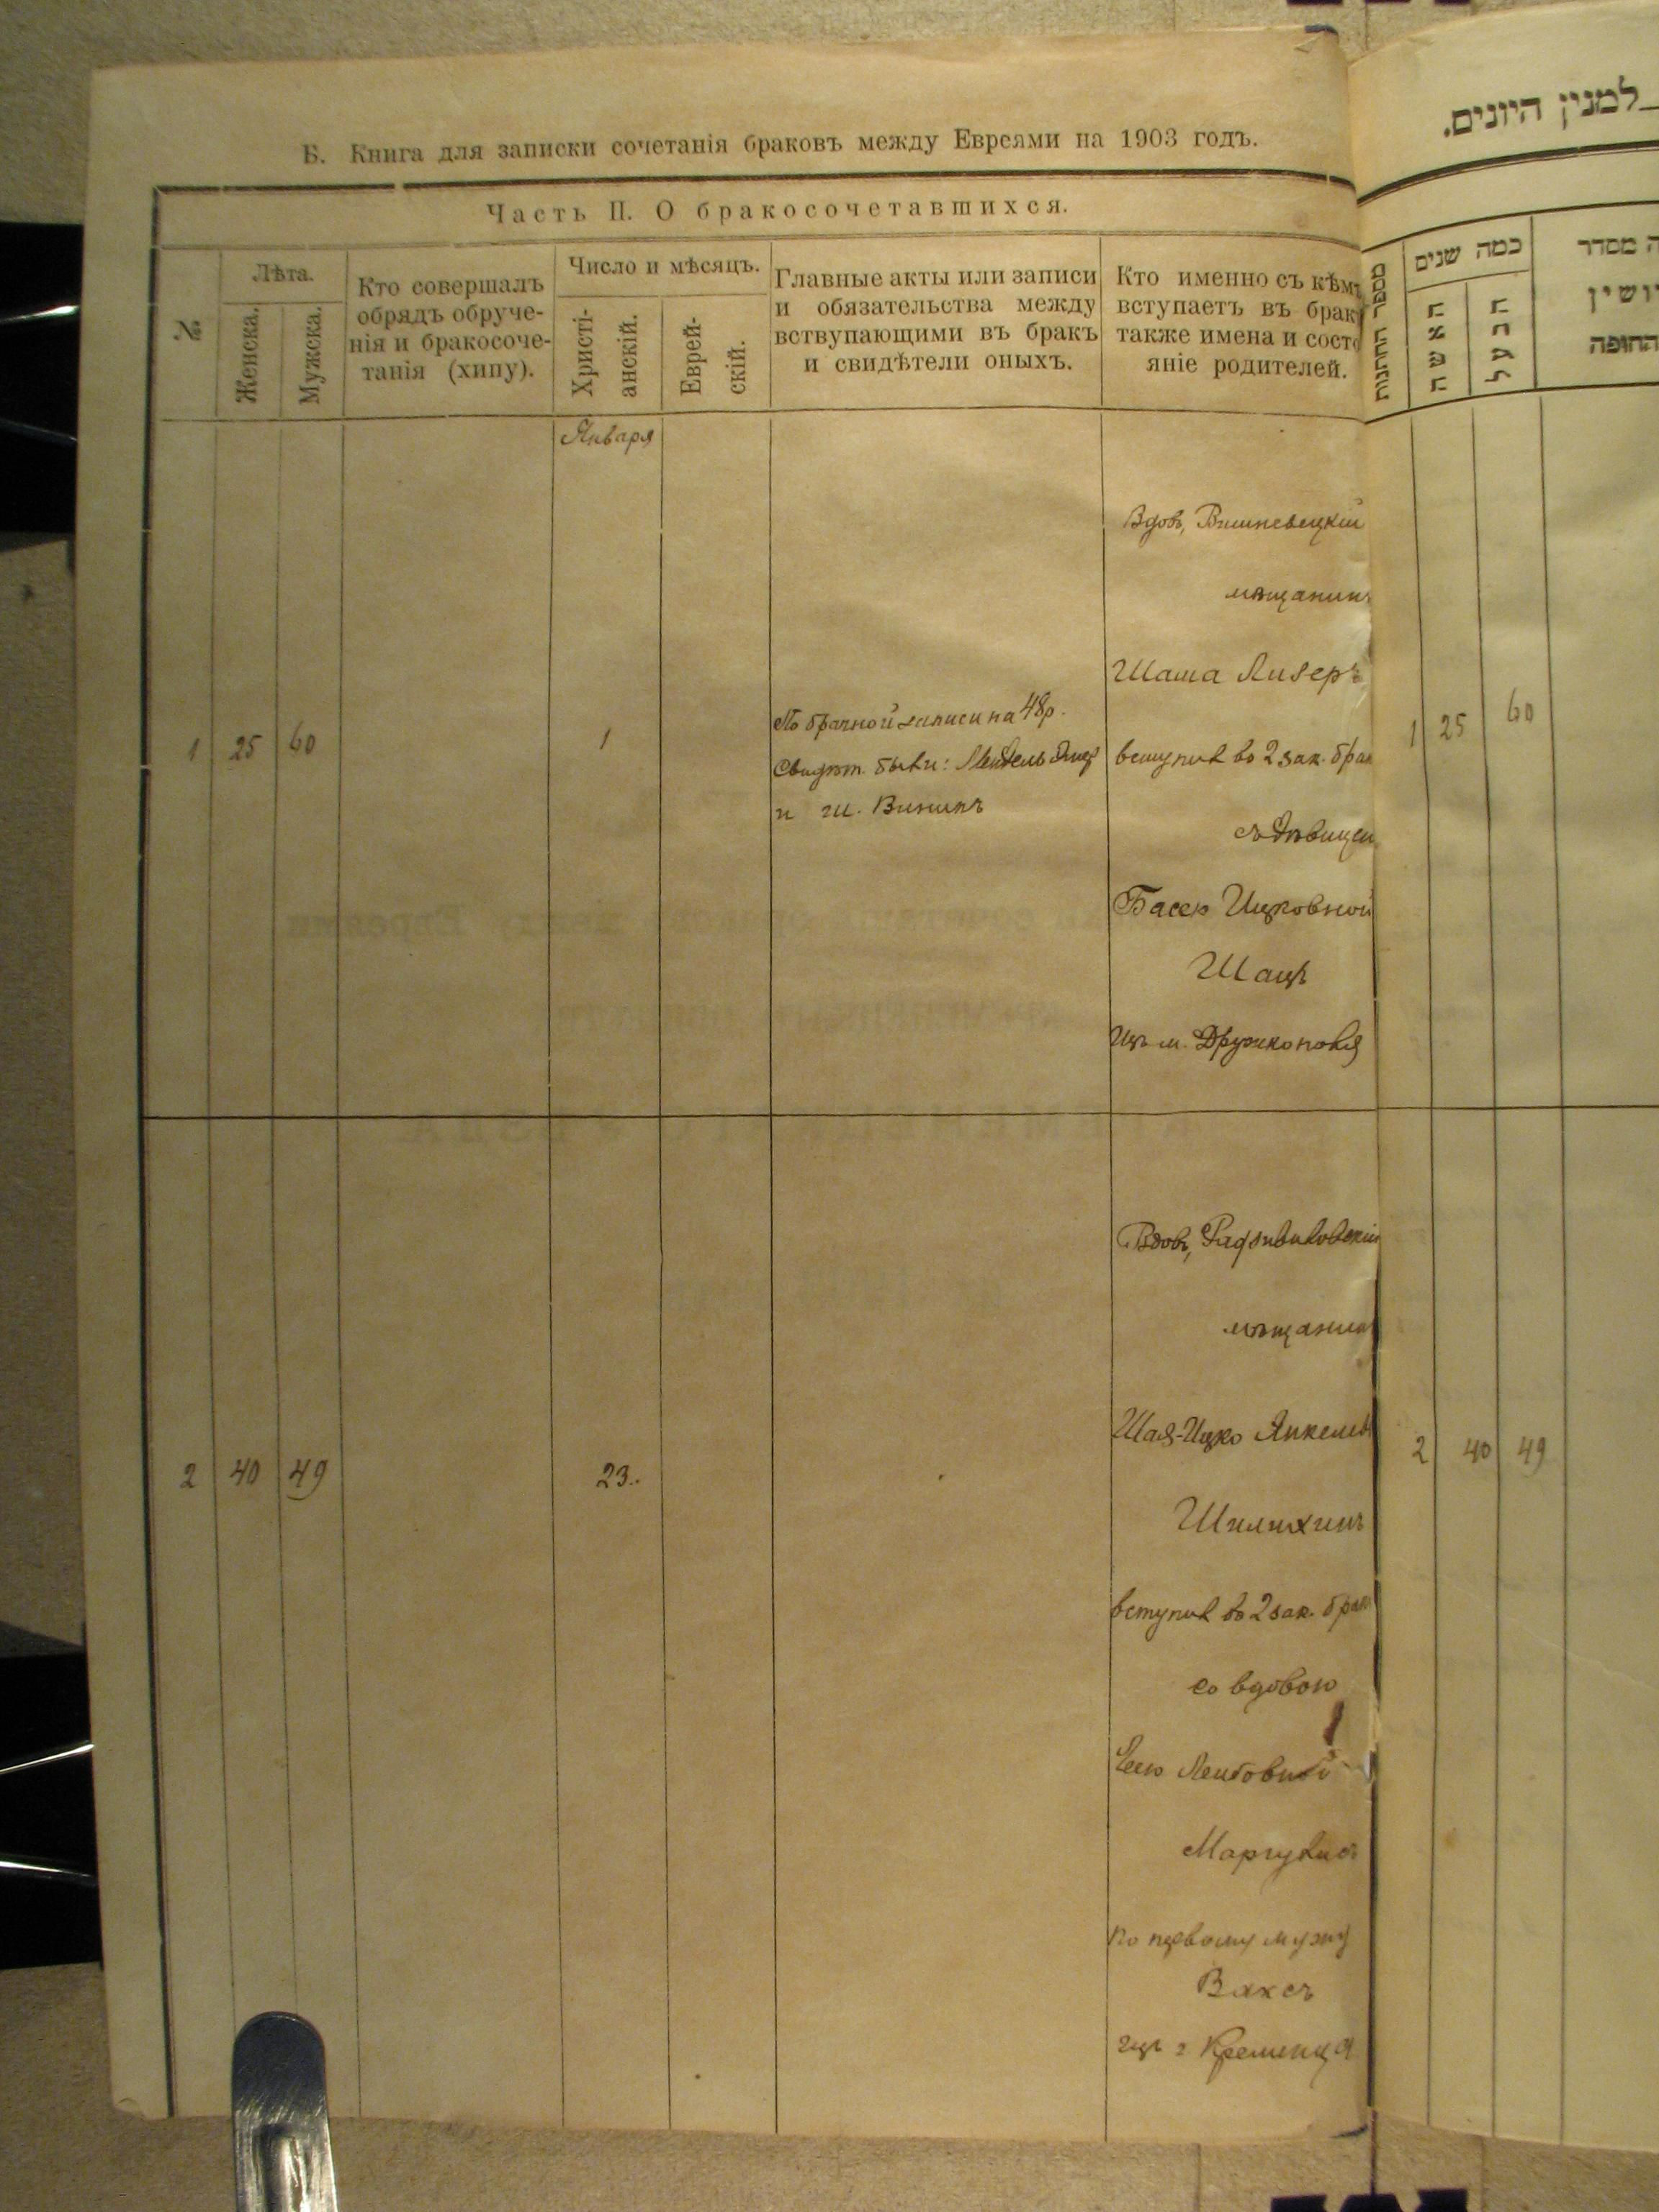 Б. Книга для записки сочетанія браковъ между Евреями на 1903 годъ.
Часть II. О бракосочетавшихся.
№
Лѣта.
Женска.
Мужска.
Кто совершалъ
обрядъ обруче-
нія и бракосоче-
танія (хипу).
Число и мѣсяцъ.
Христі-
анскій.
Еврей-
скій.
Главные акты или записи
и обязательства между
вствупающими въ бракъ
и свидѣтели оныхъ.
Кто именно съ кѣмъ
вступаетъ въ бракъ
также имена и состо
яніе родителей.
Января
1 25 60 1
По брачной записи на 48 р.
Свидѣт. были:
и Ш.
Вдов, Вишневецкій
мѣщанинъ
Шама Лизеръ
вступил во 2 зак. брак
съ дѣвицей
Басею Ицковной
Шацъ
изъ м. Дружкополя
2 40 49 23.
Вдов, Радзивиловскій
мѣщанинъ
Шая-Ицко Янкелев
вступил во 2 зак. брак
со вдовою
Лейбовной
Маргулисъ
по первому мужу
Ваксъ
изъ г Кременца
למנין היונים.
מספר החתנות
כמה שנים
האשה
הבעל
מסדר
והחופה
1 25 60
2 40 49